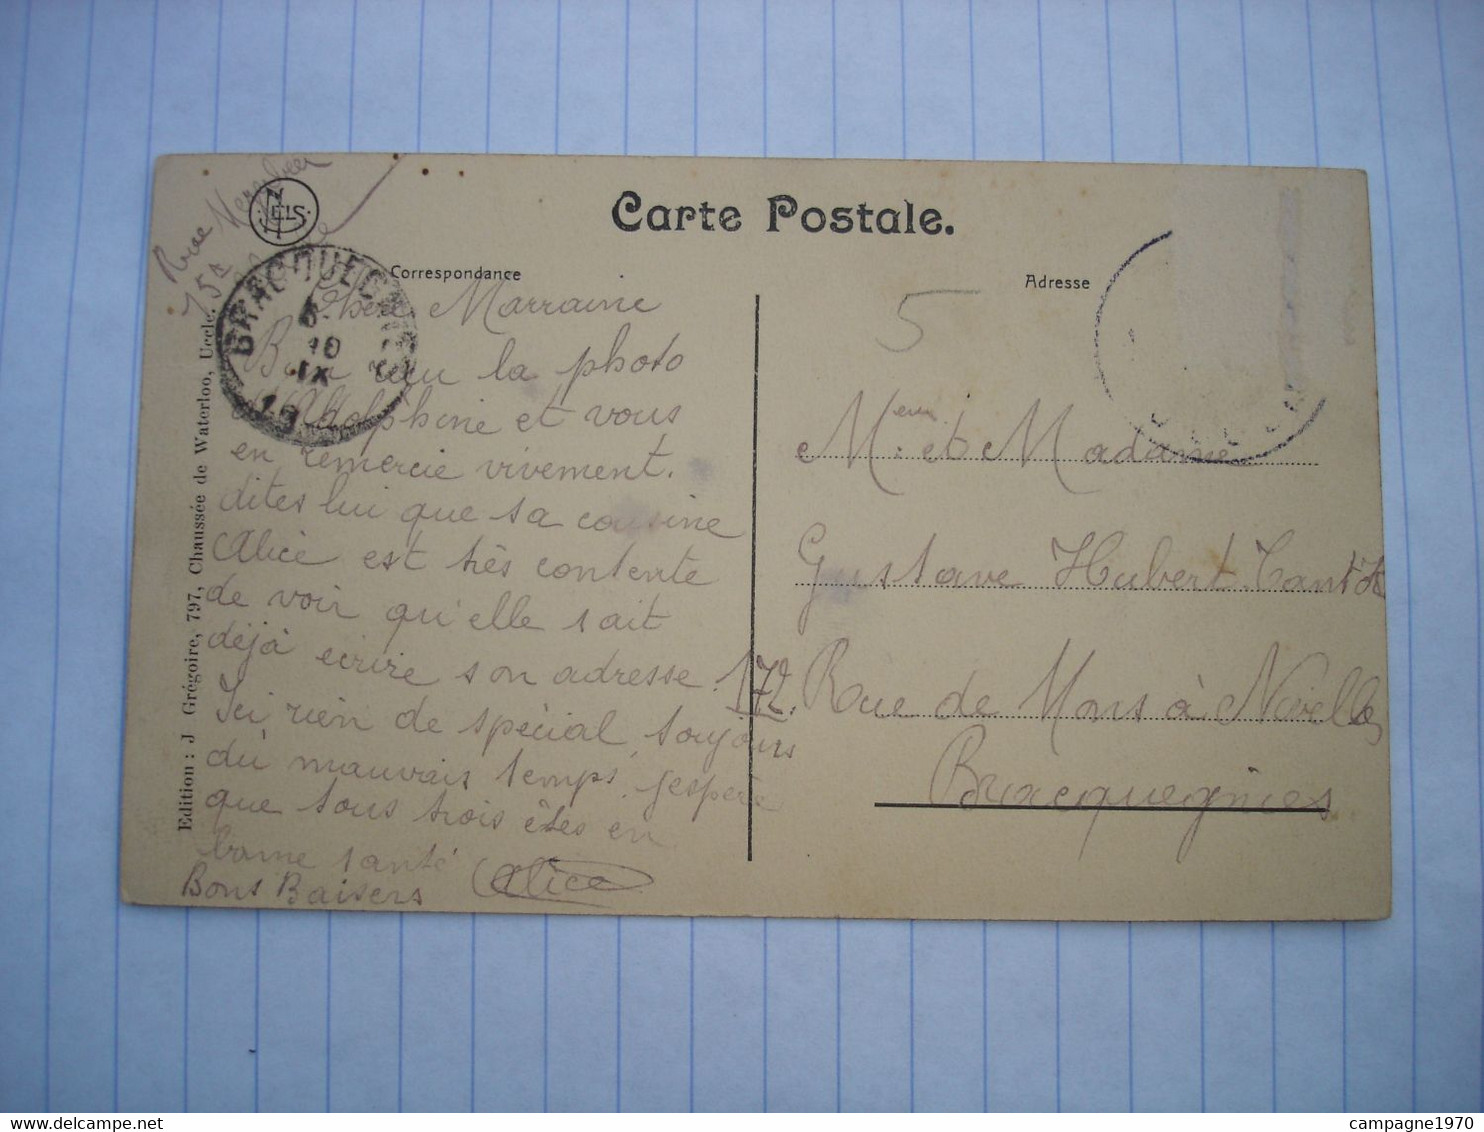 Carte Postale.
Correspondance
Adresse
NELS
Rue
75A
BRACQUEGNIES
10
IX
19
5
Chère Marraine
Bien reçu la photo
d'Adolphine et vous
en remercie vivement.
dites lui que sa cousine
Alice est très contente
de voir qu'elle sait
déjà ecrire son adresse.
Ici rien de spécial, toujours
du mauvais temps, j'espère
que tous trois êtes en
bonne santé
Bons Baisers Alice
M. et Madame
Gustave Hubert
172, Rue de Mons à Nivelles
Bracquegnies
Edition : J Grégoire, 797, Chaussée de Waterloo, Uccle.
campagne1970